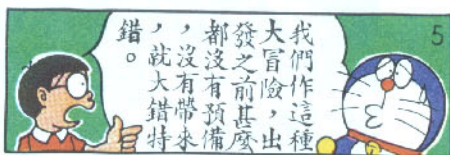 5
我們作這種
大冒險，出
發之前甚麼
都沒有預備
，沒有帶來
，就大錯特
錯。